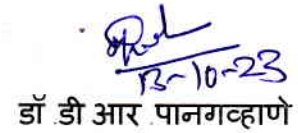 13-10-23
डॉ डी आर पानगव्हाणे